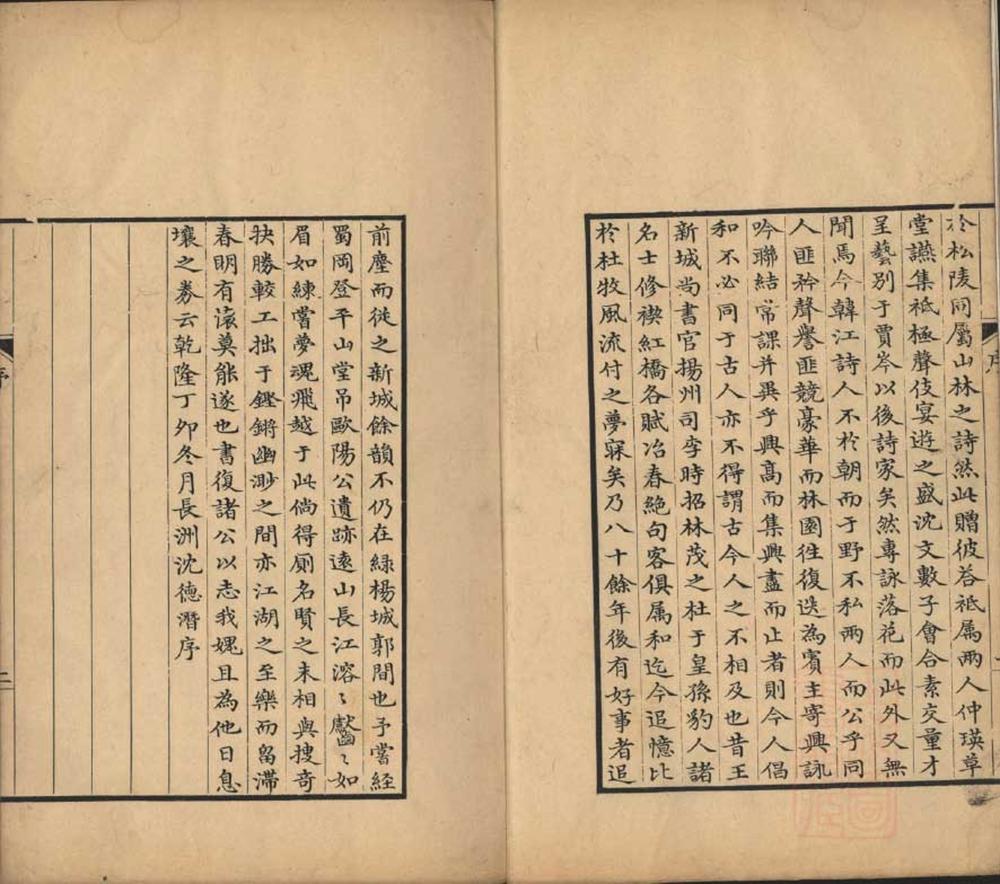 於松陵同屬山林之詩然此贈彼荅祗属兩人仲瑛草
堂讌集祗極聲伎宴遊之盛沈文數子會合素交量才
呈藝別于賈岑以後詩家矣然專詠落花而此外又無
聞焉今韓江詩人不於朝而于野不私兩人而公乎同
人匪矜聲譽匪競豪華而林園徃復迭為賓主寄興詠
吟聯結常課并異乎興高而集興盡而止者則今人倡
和不必同于古人亦不得謂古今人之不相及也昔王
新城尚書官揚州司李時招林茂之杜于皇孫豹人諸
名士修禊紅橋各賦冶春絶句客俱属和迄今追憶比
於杜牧風流付之夢寐矣乃八十餘年後有好事者追
序
前塵而従之新城餘韻不仍在緑楊城郭間也予嘗経
蜀岡登平山堂吊歐陽公遺跡遠山長江溶〻㶑〻如
眉如練嘗夢魂飛越于此倘得厠名賢之末相與搜奇
抉勝較工拙于鏗鏘幽渺之間亦江湖之至樂而留滞
春明有願莫能遂也書復諸公以志我媿且為他日息
壤之券云乾隆丁夘冬月長洲沈德潛序
序
二